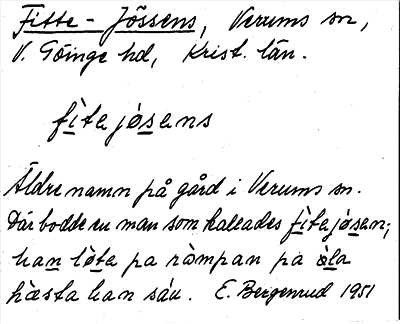 Fitte-Jössens, Verums sn,
V. Göinge hd, Krist. län.
fìtajøsens
Äldre namn på gård i Verums sn.
Där bodde en man som kallades fìtajøsen;
han løta pa ràmpan pa ǫ̀la
hæsta han sáu. E. Bergenrud 1951